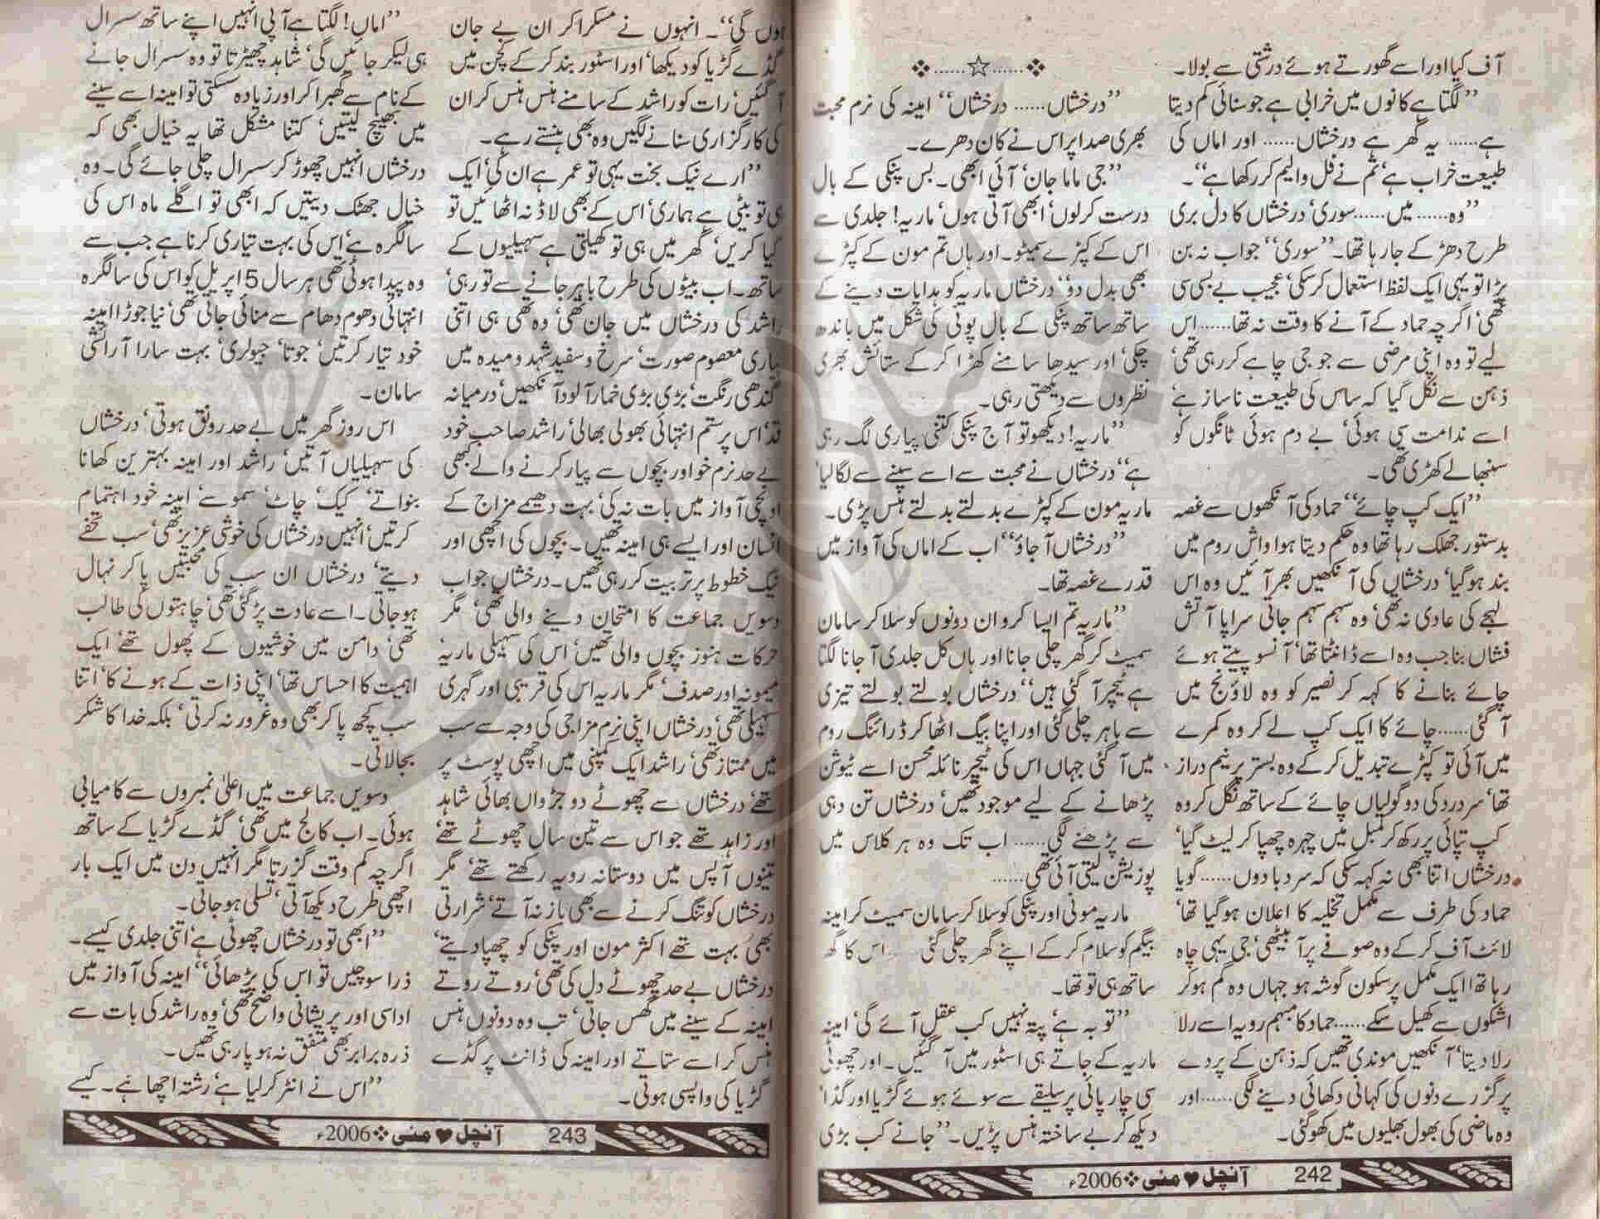 آف کیا اور اسے گھورتے ہوئے درشتی سے بولا۔
”لگتا ہے کانوں میں خرابی ہے جو سنائی کم دیتا
ہے...... یہ گھر ہے درخشاں...... اور اماں کی
طبیعت خراب ہے‘ تم نے فل والیم کر رکھا ہے“۔
”وہ...... میں...... سوری‘ درخشاں کا دل بری
طرح دھڑکے جا رہا تھا۔ ”سوری“ جواب نہ بن
پڑا تو یہی ایک لفظ استعمال کر سکی‘ عجیب بے بسی سی
تھی‘ اگرچہ حماد کے آنے کا وقت نہ تھا...... اس
لیے تو وہ اپنی مرضی سے جو جی چاہے کر رہی تھی‘
ذہن سے نکل گیا کہ ساس کی طبیعت ناساز ہے‘
اسے ندامت سی ہوئی‘ بے دم ہوئی ٹانگوں کو
سنبھالے کھڑی تھی۔
”ایک کپ چائے“ حماد کی آنکھوں سے غصہ
بدستور جھلک رہا تھا وہ حکم دیتا ہوا واش روم میں
بند ہو گیا‘ درخشاں کی آنکھیں بھر آئیں وہ اس
لہجے کی عادی نہ تھی‘ وہ سہم سہم جاتی سراپا آتش
فشاں بنا جب وہ اسے ڈانٹتا تھا‘ آنسو پیتے ہوئے
چائے بنانے کا کہہ کر نصیر کو وہ لاؤنج میں
آ گئی...... چائے کا ایک کپ لے کر وہ کمرے
میں آئی تو کپڑے تبدیل کر کے وہ بستر پر نیم دراز
تھا‘ سر درد کی دو گولیاں چائے کے ساتھ نگل کر وہ
کپ تپائی پر رکھ کر کمبل میں چہرہ چھپا کر لیٹ گیا‘
درخشاں اتنا بھی نہ کہہ سکی کہ سر دبا دوں...... گویا
حماد کی طرف سے مکمل تخلیہ کا اعلان ہو گیا تھا‘
لائٹ آف کر کے وہ صوفے پر آ بیٹھی‘ جی یہی چاہ
رہا تھا ایک مکمل پرسکون گوشہ ہو جہاں وہ گم ہو کر
اشکوں سے کھیل سکے...... حماد کا مبہم رویہ اسے رلا
رلا دیتا‘ آنکھیں موندی تھیں کہ ذہن کے پردے
پر گزرے دنوں کی کہانی دکھائی دینے لگی...... اور
وہ ماضی کی بھول بھلیوں میں کھو گئی۔
❖......☆......❖
”درخشاں...... درخشاں“ امینہ کی نرم محبت
بھری صدا پر اس نے کان دھرے۔
”جی ماما جان‘ آئی ابھی۔ بس پنکی کے بال
درست کر لوں‘ ابھی آتی ہوں‘ ماریہ! جلدی سے
اس کے کپڑے سمیٹو۔ اور ہاں تم مون کے کپڑے
بھی بدل دو‘‘ درخشاں ماریہ کو ہدایات دینے کے
ساتھ ساتھ پنکی کے بال پونی کی شکل میں باندھ
چکی‘ اور سیدھا سامنے کھڑا کر کے ستائش بھری
نظروں سے دیکھتی رہی۔
”ماریہ! دیکھو تو آج پنکی کتنی پیاری لگ رہی
ہے“ درخشاں نے محبت سے اسے سینے سے لگا لیا
ماریہ مون کے کپڑے بدلتے بدلتے ہنس پڑی۔
”درخشاں آ جاؤ“ اب کے اماں کی آواز میں
قدرے غصہ تھا۔
”ماریہ تم ایسا کرو ان دونوں کو سلا کر سامان
سمیٹ کر گھر چلی جانا اور ہاں کل جلدی آ جانا لگتا
ہے ٹیچر آ گئی ہیں“ درخشاں بولتے بولتے تیزی
سے باہر چلی گئی اور اپنا بیگ اٹھا کر ڈرائنگ روم
میں آ گئی جہاں اس کی ٹیچر نائلہ محسن اسے ٹیوشن
پڑھانے کے لیے موجود تھیں‘ درخشاں تن دہی
سے پڑھنے لگی...... اب تک وہ ہر کلاس میں
پوزیشن لیتی آئی تھی......
ماریہ مونی اور پنکی کو سلا کر سامان سمیٹ کر امینہ
بیگم کو سلام کر کے اپنے گھر چلی گئی...... اس کا گھر
ساتھ ہی تو تھا۔
”توبہ ہے‘ پتہ نہیں کب عقل آئے گی‘ امینہ
ماریہ کے جاتے ہی اسٹور میں آ گئیں۔ اور چھوٹی
سی چارپائی پر سلیقے سے سوئے ہوئے گڑیا اور گڈا
دیکھ کر بے ساختہ ہنس پڑیں۔ ”جانے کب بڑی
آنچل ♥ مئی ❖ 2006ء 242
ہوں گی“۔ انہوں نے مسکرا کر ان بے جان
گڈے گڑیا کو دیکھا‘ اور اسٹور بند کر کے کچن میں
آ گئیں‘ رات کو راشد کے سامنے ہنس ہنس کر ان
کی کارگزاری سنانے لگیں وہ بھی ہنستے رہے۔
”ارے نیک بخت یہی تو عمر ہے ان کی‘ ایک
ہی تو بیٹی ہے ہماری‘ اس کے بھی لاڈ نہ اٹھائیں تو
کیا کریں‘ گھر میں ہی تو کھیلتی ہے سہیلیوں کے
ساتھ۔ اب بیٹوں کی طرح باہر جانے سے تو رہی‘
راشد کی درخشاں میں جان تھی‘ وہ تھی ہی اتنی
پیاری معصوم صورت‘ سرخ و سفید شہد و میدہ میں
گندھی رنگت‘ بڑی بڑی خمار آلود آنکھیں‘ درمیانہ
قد‘ اس پر ستم انتہائی بھولی بھالی‘ راشد صاحب خود
بے حد نرم خو اور بچوں سے پیار کرنے والے کبھی
اونچی آواز میں بات نہ کی‘ بہت دھیمے مزاج کے
انسان اور ایسے ہی امینہ تھیں۔ بچوں کی اچھی اور
نیک خطوط پر تربیت کر رہی تھیں۔ درخشاں جو اب
دسویں جماعت کا امتحان دینے والی تھی‘ مگر
حرکات ہنوز بچوں والی تھیں‘ اس کی سہیلی ماریہ
میمونہ اور صدف‘ مگر ماریہ اس کی قریبی اور گہری
سہیلی تھی‘ درخشاں اپنی نرم مزاجی کی وجہ سے سب
میں ممتاز تھی‘ راشد ایک کمپنی میں اچھی پوسٹ پر
تھے‘ درخشاں سے چھوٹے دو جڑواں بھائی شاہد
اور زاہد تھے جو اس سے تین سال چھوٹے تھے‘
تینوں آپس میں دوستانہ رویہ رکھتے تھے‘ مگر
درخشاں کو تنگ کرنے سے بھی باز نہ آتے‘ شرارتی
بھی بہت تھے اکثر مون اور پنکی کو چھپا دیتے‘
درخشاں بے حد چھوٹے دل کی تھی‘ روتے روتے
امینہ کے سینے میں گھس جاتی‘ تب وہ دونوں ہنس
ہنس کر اسے ستاتے اور امینہ کی ڈانٹ پر گڈے
گڑیا کی واپسی ہوتی۔
”اماں! لگتا ہے آپی انہیں اپنے ساتھ سسرال
ہی لیکر جائیں گی‘ شاہد چھیڑتا تو وہ سسرال جانے
کے نام سے گھبرا کر اور زیادہ سسکتی تو امینہ اسے سینے
میں بھینچ لیتیں‘ کتنا مشکل تھا یہ خیال بھی کہ
درخشاں انہیں چھوڑ کر سسرال چلی جائے گی۔ وہ
خیال جھٹک دیتیں کہ ابھی تو اگلے ماہ اس کی
سالگرہ ہے‘ اس کی بہت تیاری کرنا ہے جب سے
وہ پیدا ہوئی تھی ہر سال 5 اپریل کو اس کی سالگرہ
انتہائی دھوم دھام سے منائی جاتی تھی‘ نیا جوڑا امینہ
خود تیار کرتیں‘ جوتا‘ جیولری‘ بہت سارا آرائشی
سامان۔
اس روز گھر میں بے حد رونق ہوتی‘ درخشاں
کی سہیلیاں آتیں‘ راشد اور امینہ بہترین کھانا
بنواتے‘ کیک‘ چاٹ‘ سموسے‘ امینہ خود اہتمام
کرتیں‘ انہیں درخشاں کی خوشی عزیز تھی‘ سب تحفے
دیتے‘ درخشاں ان سب کی محبتیں پا کر نہال
ہو جاتی۔ اسے عادت پڑ گئی تھی‘ چاہتوں کی طالب
تھی‘ دامن میں خوشیوں کے پھول تھے‘ ایک
اہمیت کا احساس تھا‘ اپنی ذات کے ہونے کا‘ اتنا
سب کچھ پا کر بھی وہ غرور نہ کرتی‘ بلکہ خدا کا شکر
بجا لاتی۔
دسویں جماعت میں اعلیٰ نمبروں سے کامیابی
ہوئی۔ اب کالج میں تھی‘ گڈے گڑیا کے ساتھ
اگرچہ کم وقت گزرتا مگر انہیں دن میں ایک بار
اچھی طرح دیکھ آتی‘ تسلی ہو جاتی۔
”ابھی تو درخشاں چھوٹی ہے‘ اتنی جلدی کیسے۔
ذرا سوچیں تو اس کی پڑھائی“ امینہ کی آواز میں
اداسی اور پریشانی واضح تھی‘ وہ راشد کی بات سے
ذرہ برابر بھی متفق نہ ہو پا رہی تھیں۔
”اس نے انٹر کر لیا ہے‘ رشتہ اچھا ہے۔ کیسے
آنچل ♥ مئی ❖ 2006ء 243